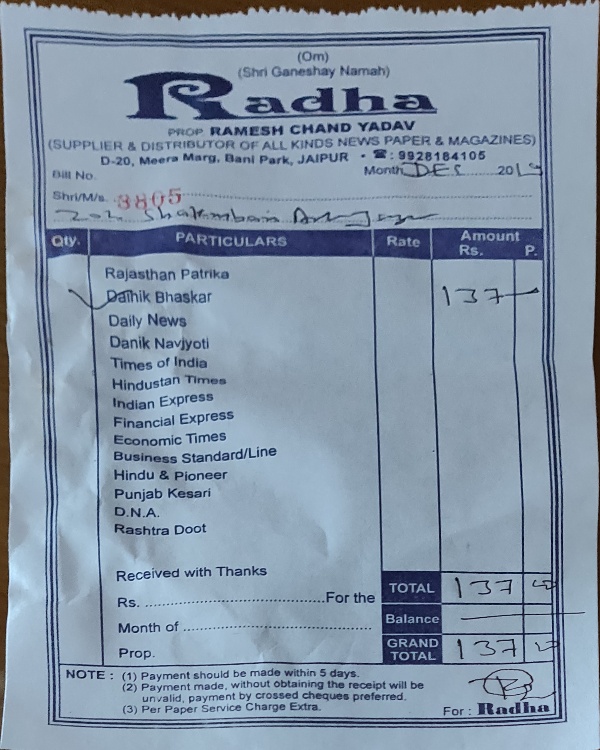 (Om)
(Shri Ganeshay Namah)
Radha
PROP. RAMESH CHAND YADAV
(SUPPLIER & DISTRIBUTOR OF ALL KINDS NEWS PAPER & MAGAZINES)
D-20, Meera Marg, Bani Park, JAIPUR • ☎: 9928184105
Bill No. Month DEC 2019
Shri/M/s. 3805
202
Qty. PARTICULARS Rate Amount Rs. P.
Rajasthan Patrika
✓ Dainik Bhaskar 137 —
Daily News
Danik Navjyoti
Times of India
Hindustan Times
Indian Express
Financial Express
Economic Times
Business Standard/Line
Hindu & Pioneer
Punjab Kesari
D.N.A.
Rashtra Doot
Received with Thanks
TOTAL 137
Rs. ........................................For the
Balance —
Month of ........................................
GRAND TOTAL 137
Prop.
NOTE : (1) Payment should be made within 5 days.
(2) Payment made, without obtaining the receipt will be
unvalid, payment by crossed cheques preferred.
(3) Per Paper Service Charge Extra.
For : Radha